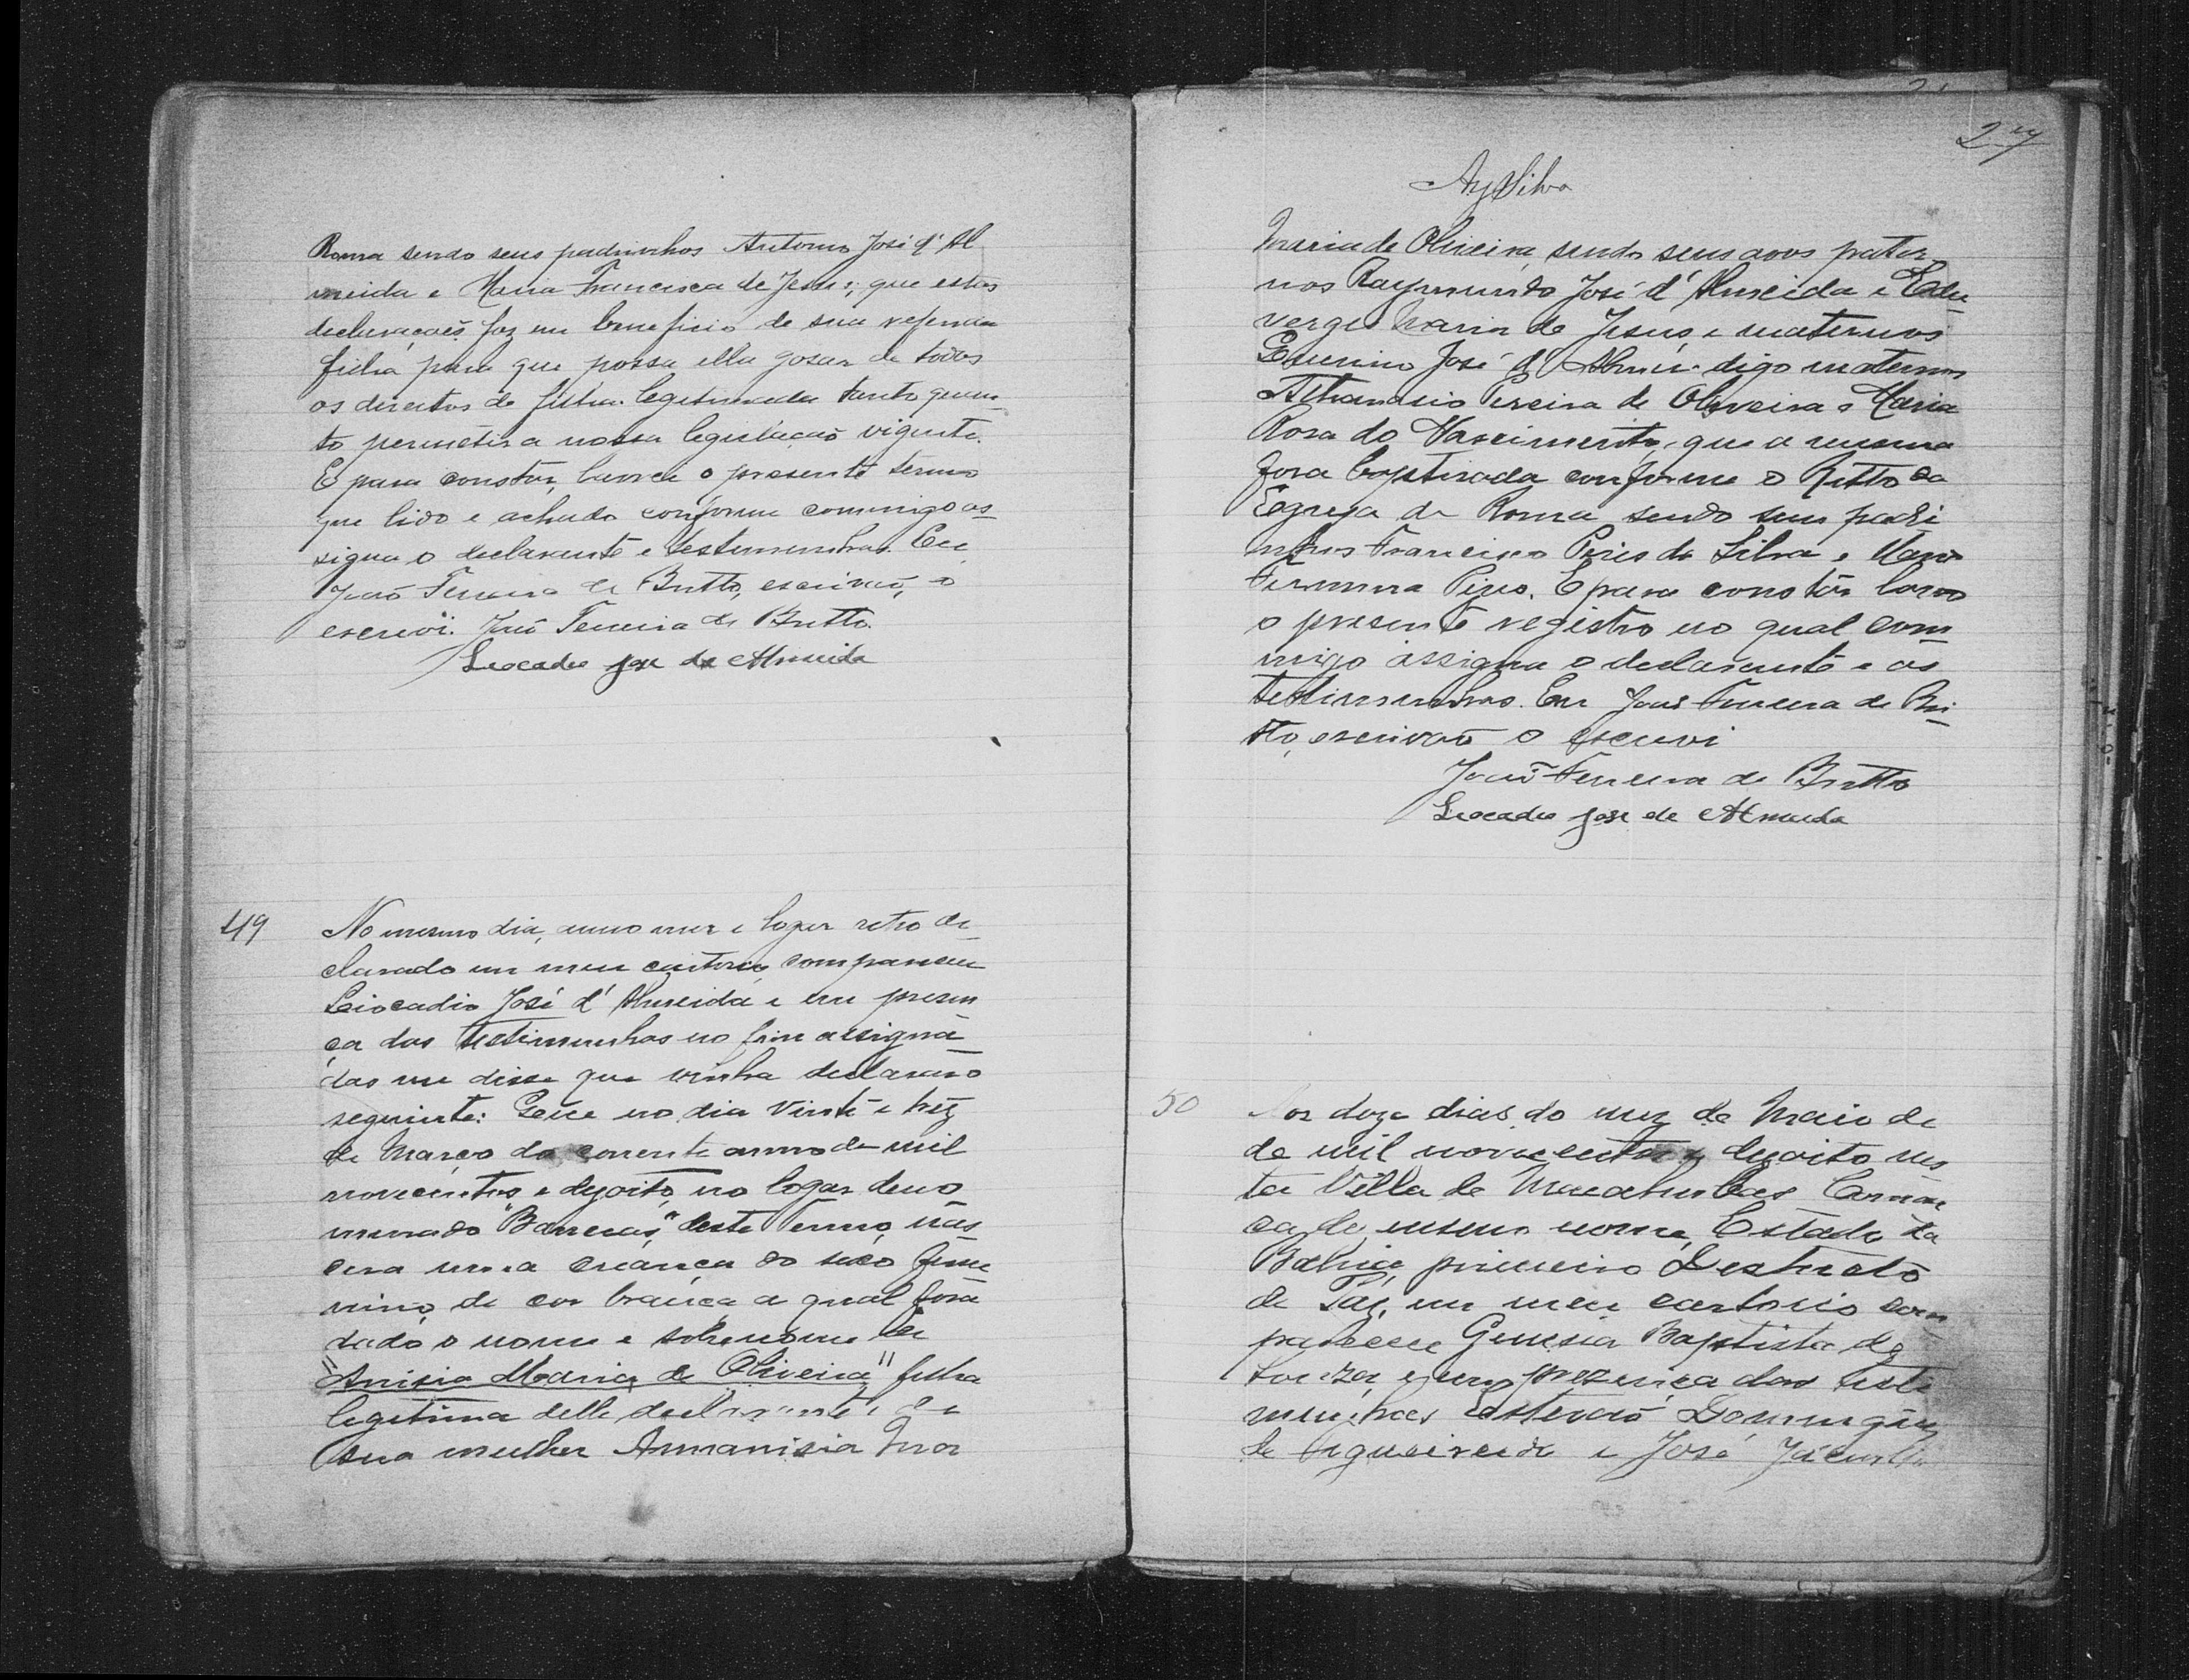 Roma sendo seus padrinhos Antonio José d' Al
meida e Maria Francisca de Jesus, que estas
declaraçoẽs faz em beneficio de sua referida
filha para que possa ella gosar de todos
os direitos de filha legitimada tanto quan_
to permetir a nossa legislaçaõ vigente.
E para constar, lavrei o presente termo
que lido e achado conforme commigo as_
signa o declarante e testemunhas. Eu
Joaõ Ferreira de Britto, escrivaõ, o
escrevi. Joaõ Ferreira de Britto.
Leocadio jose de Almeida
49
No mesmo dia, anno mez e logar retro de_
clarado em meu cartorio, compareceu
Leiocadio José d' Almeida e em presen
ça das testimunhas no fim assigna_
das me disse que vinha declarar o
seguinte: Que no dia vinte e trez
de Março do corrente anno de mil
novecentos e dezoito, no logar deno_
minado "Barreiras," deste Termo, nas_
cera uma criança do sexo femi
nino, de cor branca a qual fora
dado o nome e sobrenome de
"Anisia Maria de Oliveira" filha
legitima delle declarante e de
sua mulher Anmanisia Mar
27
Ay Silva
Maria de Oliveira, sendo seus avos pater_
nos Raymundo José d' Almeida e Edu_
verges Maria de Jesus, e maternos
José d' digo maternos
Athanasio Pereira de Oliveira e Maria
Rosa do Nascimento, que a mesma
fora baptisada conforme o Ritto da
Egreja de Roma sendo seus padri
nhos Francisco Pires da Silva e Maria
Pires. E para constar lavro
o presente registro no qual com_
migo assigna o declarante e as
testimunhas. Eu Joaõ Ferreira de Bri_
tto, escrivaõ o escrevi
Joaõ Ferreira de Britto
Leocadio jose de Almeida
50
Aos doze dias do mez de Maio de
de mil novecentos e dezoito nes
ta Villa de Macahubas Comar
ca do mesmo nome, Estado da
Bahia, primeiro Destricto
de Paz, em meu cartorio com
pareceu Genesia Baptista de
Souza, e em prezença das teste
munhas Estevaõ Domingues
de Figueiredo e José